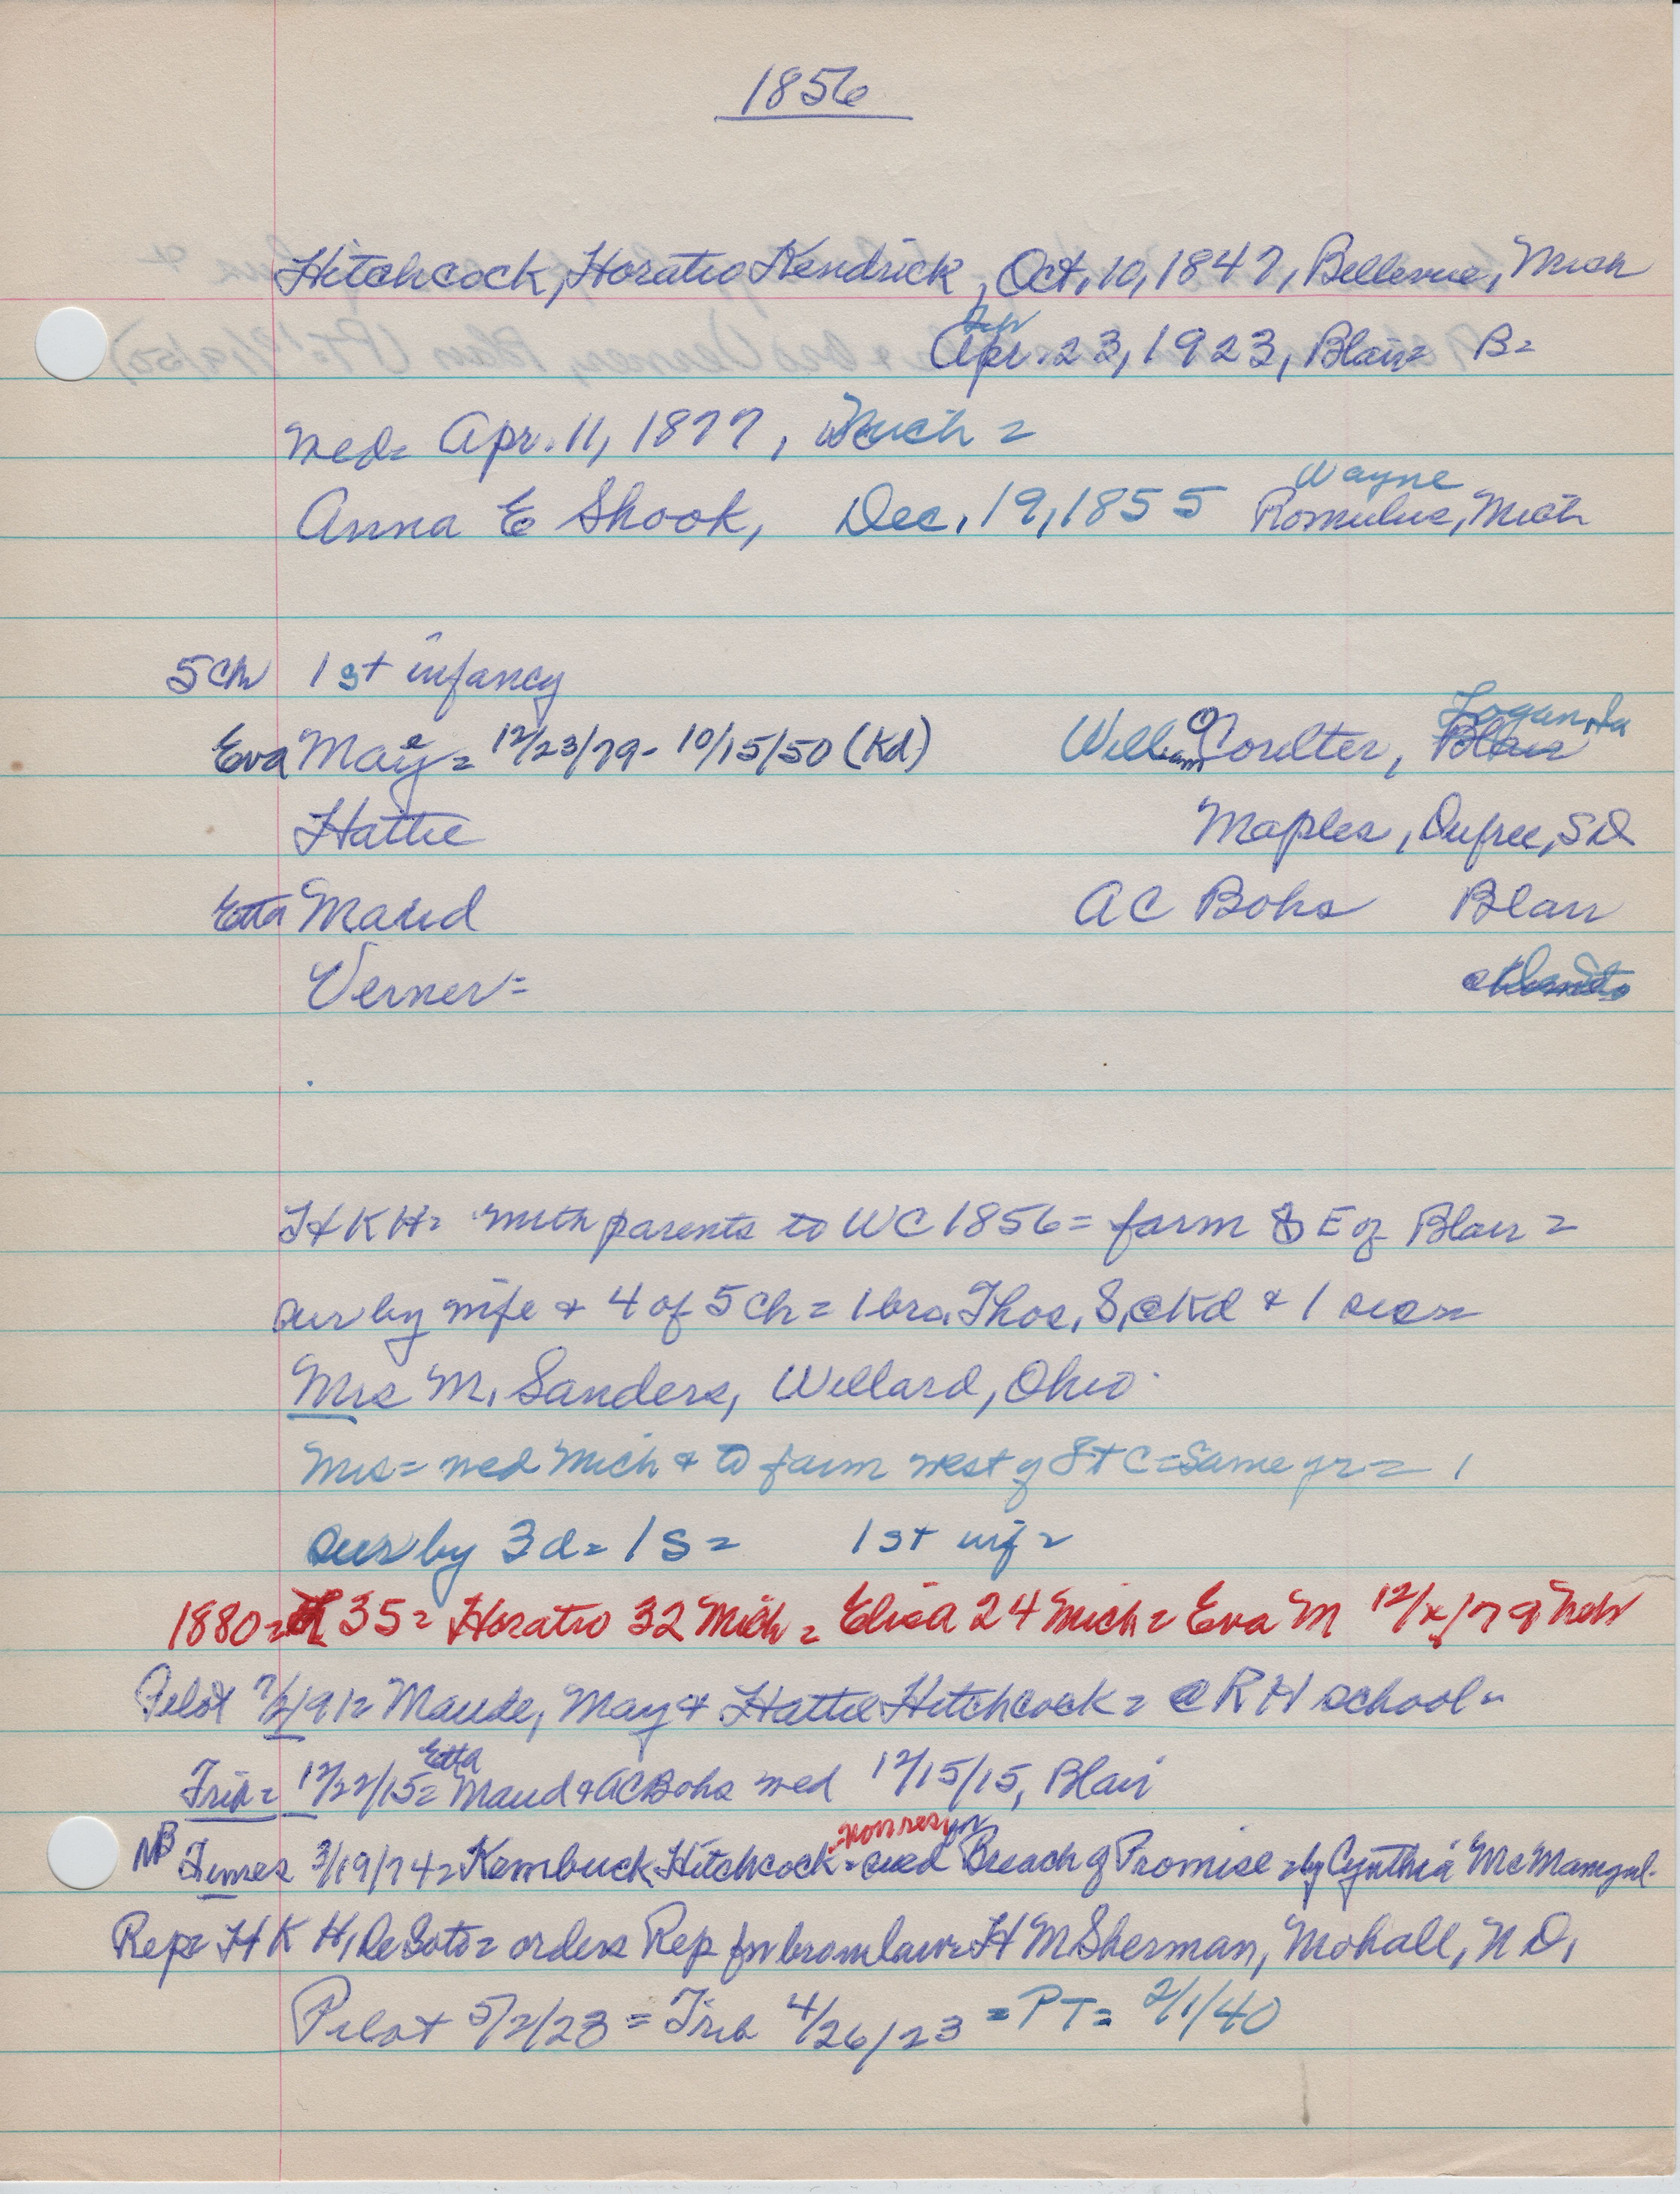 1856
Hitchcock, Horatio Kendrick, Oct, 10, 1847, Bellevue, Mich
Apr. 23, 1923, Blair= B=
wed= Apr. 11, 1877, Mich=
Wayne
Anna E Shook, Dec, 19, 1855 Romulus, Mich
5 ch 1st infancy
Logan, Ia
Eva Mae= 12/23/79- 10/15/50 (Kd) William O Coulter, Blair
Hattie Maples, Dupree, SD
Etta Maud AC Bohs Blair
Verner=
HKH= with parents to WC 1856= farm SE of Blair=
sur by wife + 4 of 5 ch= 1 bro, Thos, S, @Kd + 1 sis=
Mrs M, Sanders, Willard, Ohio
Mrs= wed Mich + to farm west of Ft C= same yr=
sur by 3 d= 1 S= 1st wif=
1880= 35= Horatio 32 Mich= Eliza 24 Mich= Eva M 12/x/79 Neb
Pilot 7/2/91= Maude, May + Hattie Hitchcock= @ RH school=
Etta
Trib= 12/22/15= Maud + AC Bohs wed 12/15/15, Blair
=non res
NB Times 3/19/74= Kembuck Hitchcock= sued Breach of Promise= by Cynthia McManigal
Rep= HKH, DeSoto= orders Rep for bro in law= HM Sherman, Mohall, ND,
Pilot 5/2/23= Trib 4/26/23 =PT= 2/1/40